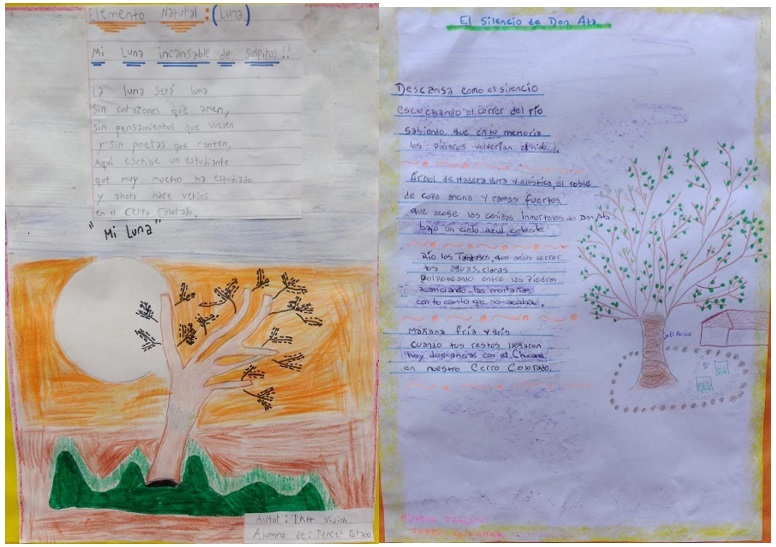 Elemento Natural: (Luna)
Mi Luna incansable de
La luna será luna
Sin corazones que amen,
Sin pensamientos que vuelen
y sin poetas que canten,
Aquí escribe un estudiante
que muy mucho ha estudiado
y ahora hace versos
en el Cerro Colorado.
"Mi Luna"
Autor:
Alumno de: Tercer
El Silencio de Don Ata
Descansa como el silencio
escuchando el correr del río
Sabiendo que en tu memoria
los pájaros volverían
Árbol de madera dura y el roble
de copa amena y ramas fuertes
que acoge las cenizas inmortales de Don Ata
bajo un cielo azul celeste
Río los Tartagos que dejas correr
tus aguas claras
entre las piedras
acariciando las montañas
con tu canto que no acaba
Mañana fría y gris
cuando tus restos llegaron
hoy descansas con el Chúcaro
en nuestro Cerro Colorado.